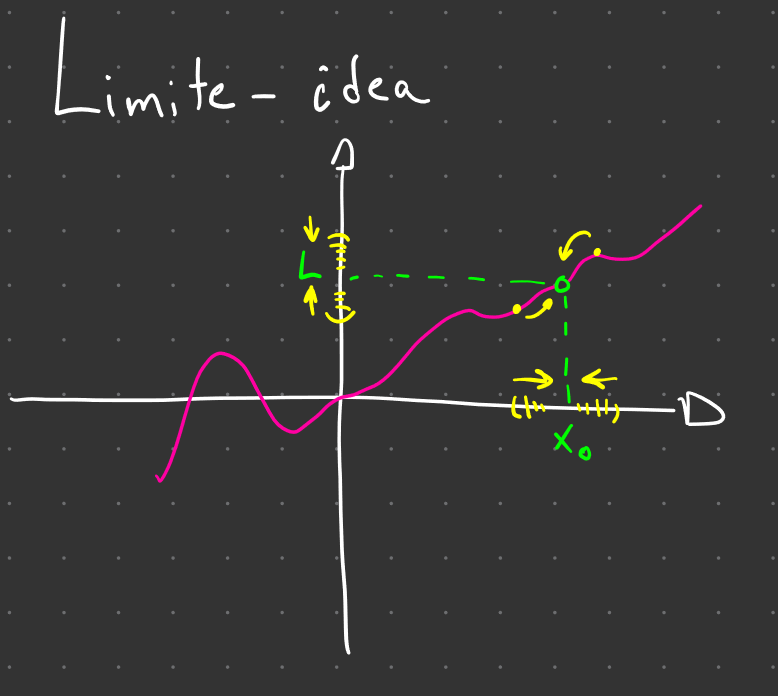 Limite - idea
L
x₀